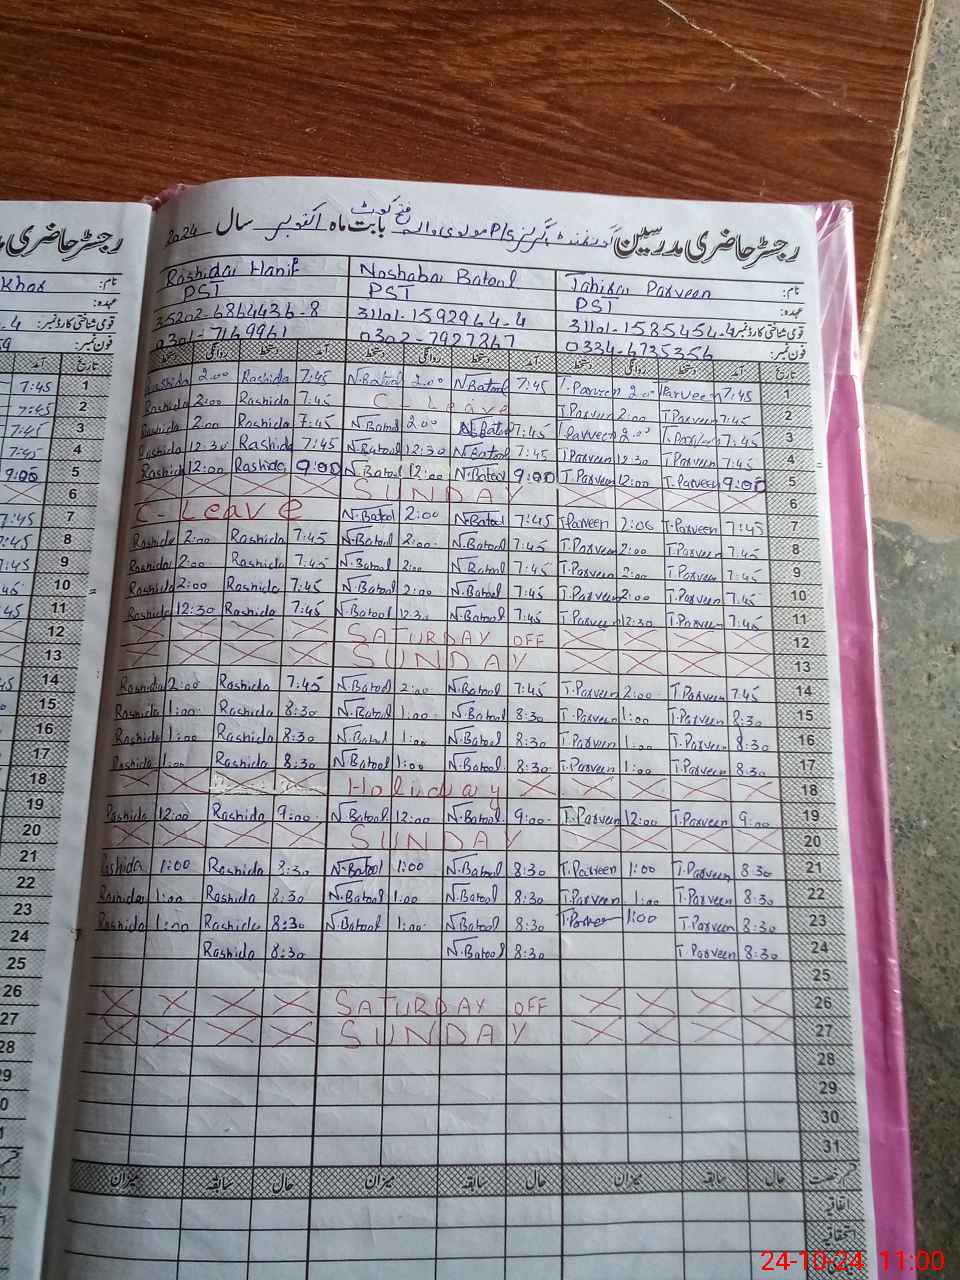 رجسٹر حاضری مدرسین گورنمنٹ گرلز P/S مولوی والہ فتح کوٹ بابت ماہ اکتوبر سال 2024
Rashida Hanif Noshaba Batool Tahira Parveen نام:
PST PST PST عہدہ:
35202-6864436-8 31101-1592964-4 31101-1585454-4 قومی شناختی کارڈ نمبر:
0301-7169961 0302-7927267 0334-6735356 فون نمبر:
دستخط روانگی دستخط آمد دستخط روانگی دستخط آمد دستخط روانگی دستخط آمد تاریخ
7:45 Rashida 2.00 Rashida 7:45 N.Batool 2.00 N.Batool 7:45 T.Parveen 2.00 T.Parveen 7:45 1
7:45 Rashida 2:00 Rashida 7:45 C-Leave T.Parveen 2:00 T.Parveen 7:45 2
7:45 Rashida 2.00 Rashida 7:45 N.Batool 2.00 N.Batool 7:45 T.Parveen 2.00 T.Parveen 7:45 3
7:45 Rashida 12:30 Rashida 7:45 N.Batool 12:30 N.Batool 7:45 T.Parveen 12:30 T.Parveen 7:45 4
9:00 5 Rashida 12:00 Rashida 9:00 N.Batool 12:00 N.Batool 9:00 T.Parveen 12:00 T.Parveen 9:00 5
6 SUNDAY 6
7:45 7 C-Leave N.Batool 2:00 N.Batool 7:45 T.Parveen 2:00 T.Parveen 7:45 7
7:45 8 Rashida 2:00 Rashida 7:45 N.Batool 2:00 N.Batool 7:45 T.Parveen 2:00 T.Parveen 7:45 8
9 Rashida 2:00 Rashida 7:45 N.Batool 2:00 N.Batool 7:45 T.Parveen 2:00 T.Parveen 7:45 9
10 Rashida 2:00 Rashida 7:45 N.Batool 2:00 N.Batool 7:45 T.Parveen 2:00 T.Parveen 7:45 10
11 Rashida 12:30 Rashida 7:45 N.Batool 12:30 N.Batool 7:45 T.Parveen 12:30 T.Parveen 7:45 11
12 SATURDAY OFF 12
13 SUNDAY 13
14 Rashida 2:00 Rashida 7:45 N.Batool 2:00 N.Batool 7:45 T.Parveen 2:00 T.Parveen 7:45 14
15 Rashida 1:00 Rashida 8:30 N.Batool 1:00 N.Batool 8:30 T.Parveen 1:00 T.Parveen 8:30 15
16 Rashida 1:00 Rashida 8:30 N.Batool 1:00 N.Batool 8:30 T.Parveen 1:00 T.Parveen 8:30 16
17 Rashida 1:00 Rashida 8:30 N.Batool 1:00 N.Batool 8:30 T.Parveen 1:00 T.Parveen 8:30 17
18 Holiday 18
19 Rashida 12:00 Rashida 9:00 N.Batool 12:00 N.Batool 9:00 T.Parveen 12:00 T.Parveen 9:00 19
20 SUNDAY 20
21 Rashida 1:00 Rashida 8:30 N.Batool 1:00 N.Batool 8:30 T.Parveen 1:00 T.Parveen 8:30 21
22 Rashida 1:00 Rashida 8:30 N.Batool 1:00 N.Batool 8:30 T.Parveen 1:00 T.Parveen 8:30 22
23 Rashida 1:00 Rashida 8:30 N.Batool 1:00 N.Batool 8:30 T.Parveen 1:00 T.Parveen 8:30 23
24 Rashida 8:30 N.Batool 8:30 T.Parveen 8:30 24
25 25
26 SATURDAY OFF 26
27 SUNDAY 27
28 28
29
30
31
میزان سابقہ حال میزان سابقہ حال میزان سابقہ حال قسم رخصت
اتفاقیہ
استحقاقیہ
24-10-24 11:00